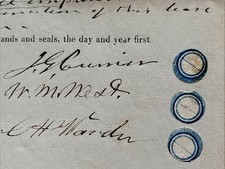 of this lease
ands and seals, the day and year first
J. G. Currier
W. M. West.
C H Warder